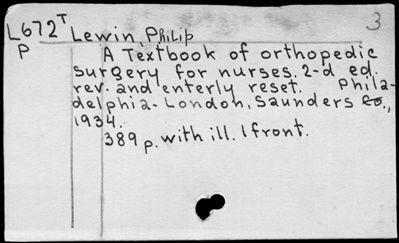 3
L672T Lewin, Philip
P A Textbook of orthopedic
surgery for nurses. 2-d ed.
rev. and enterly reset. Phila-
delphia-London, Saunders Co.,
1934.
389 p. with ill. 1 front.